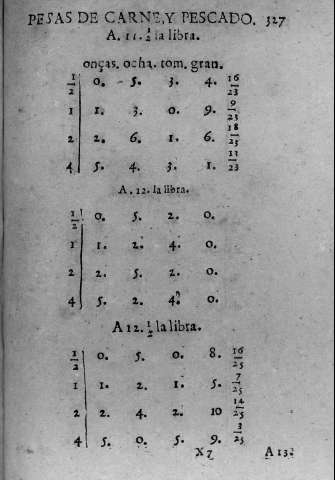 PESAS DE CARNE,Y PESCADO. 327
A. 11. 1/2 la libra.
onças. ocha. tom. gran.
1/2 0. 5. 3. 4. 16/23
1 1. 3. 0. 9. 9/23
2 2. 6. 1. 6. 18/23
4 5. 4. 3. 1. 13/23
A. 12. la libra.
1/2 0. 5. 2. 0.
1 1. 2. 4. 0.
2 2. 5. 2. 0.
4 5. 2. 4. 0.
A 12. 1/2 la libra.
1/2 0. 5. 0. 8. 16/25
1 1. 2. 1. 5. 7/25
2 2. 4. 2. 10 14/25
4 5. 0. 5. 9. 3/25
X 7 A 13 1/2